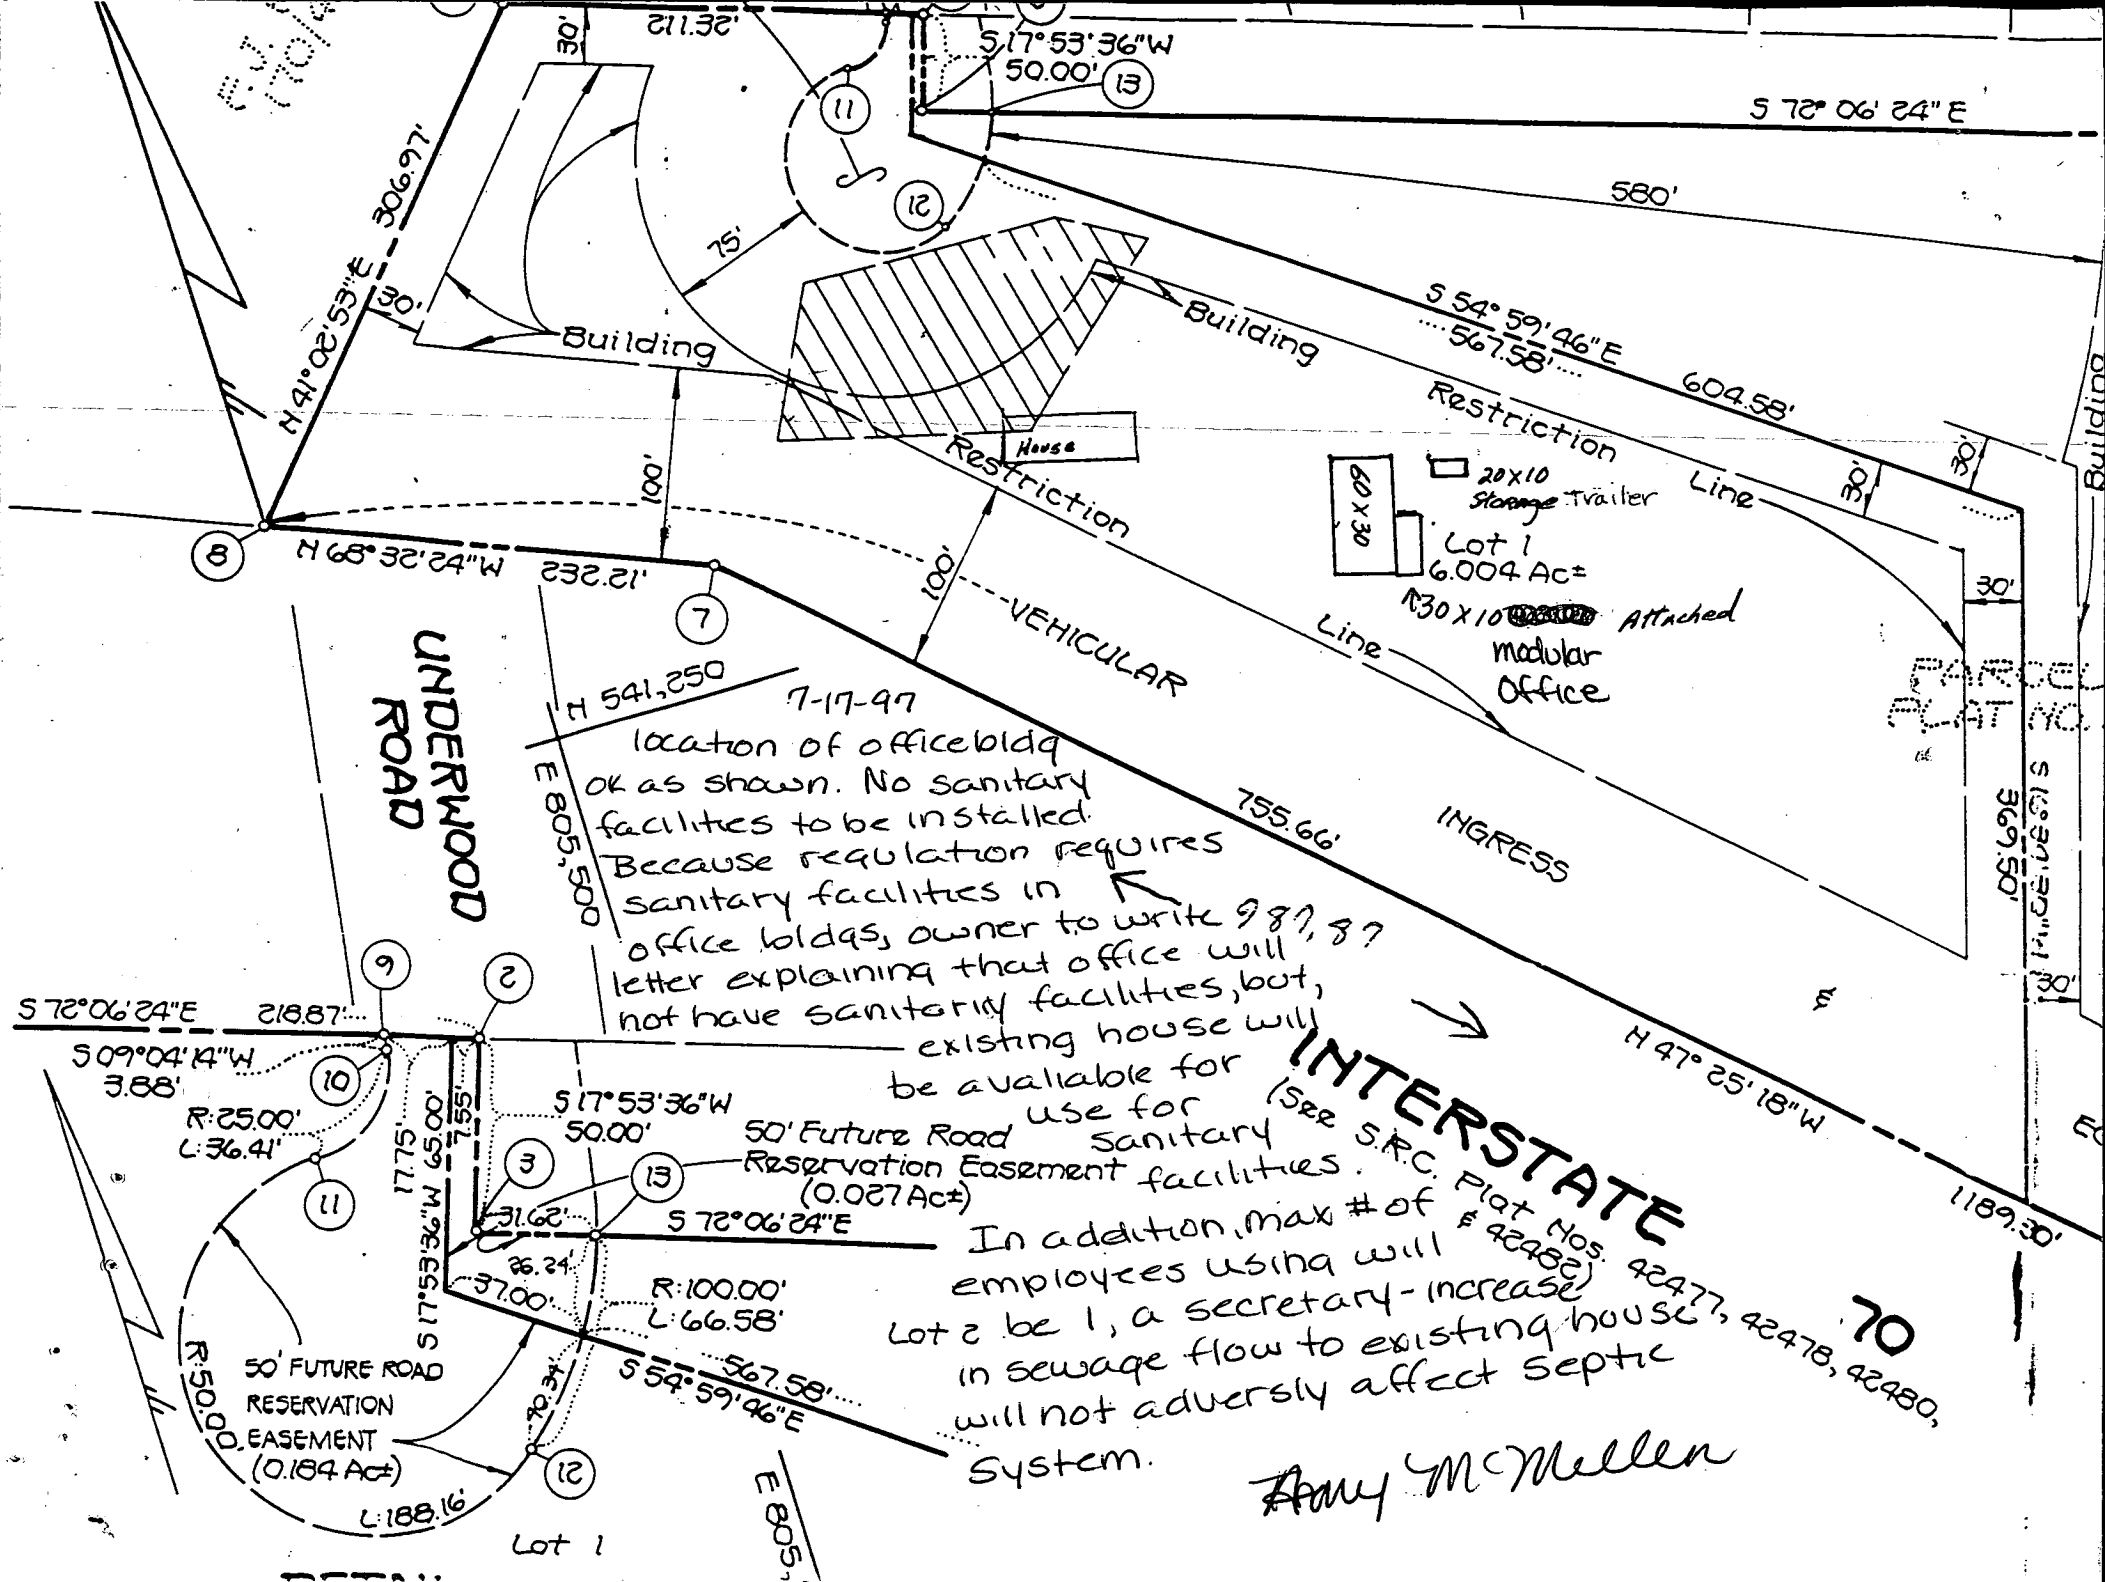 211.32'
30'
S 17°53'36"W
50.00'
13
11
S 72° 06' 24" E
580'
12
75'
306.97'
N 41°02'53"E
30'
Building
Building
S 54° 59' 46"E
567.58'
604.58'
Restriction
Line
30'
30'
Building
House
Restriction
Line
60 x 30
20x10
Storage Trailer
Lot 1
6.004 Ac±
30 x 10 Attached
modular
Office
30'
PARCEL
PLAT NO.
369.50'
30'
100'
100'
8
N 68° 32' 24" W 232.21'
7
VEHICULAR
INGRESS
&
755.66'
N 47° 25' 18" W
1189.30'
UNDERWOOD
ROAD
N 541,250
E 805,500
7-17-97
location of office bldg
ok as shown. No sanitary
facilities to be installed.
Because regulation requires
sanitary facilities in
office bldgs, owner to write
letter explaining that office will
not have sanitary facilities, but,
existing house will
be avaliable for
use for
sanitary
facilities.
In addition, max # of
employees using will
Lot 2 be 1, a secretary - increase
in sewage flow to existing house
will not adversly affect septic
system.
Amy McMillen
INTERSTATE
70
(See S.R.C. Plat Nos. 42477, 42478, 42480,
& 42482)
9
2
S 72°06'24"E 218.87'
S 09°04'14"W
3.88'
10
R:25.00'
L:36.41'
11
17.75'
S 17°53'36"W 65.00'
7.55'
S 17°53'36"W
50.00'
3
13
50' Future Road
Reservation Easement
(0.027 Ac±)
31.62'
S 72°06'24"E
26.24'
37.00'
R:100.00'
L:66.58'
567.58'
S 54°59'46"E
50' FUTURE ROAD
RESERVATION
EASEMENT
(0.184 Ac±)
R:50.00
L:188.16'
12
Lot 1
E 805,